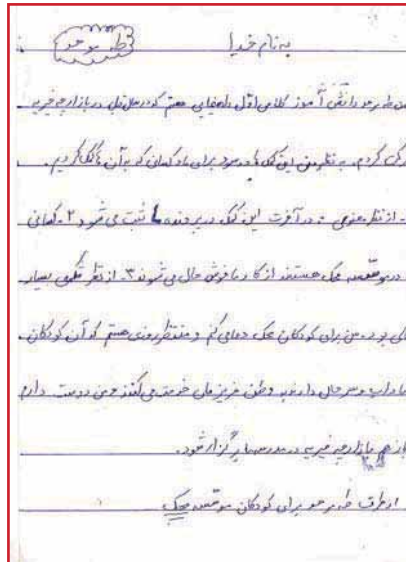 به نام خدا
دانش آموز کلاس اول راهنمایی هستم که در بازارچه خیریه
کردم. به نظر من این کمک برای کودکانی که به آن ها کمک کردیم.
از نظر در آخرت این کمک در پرونده ما ثبت می شود ۲- کسانی
در موسسه محک هستند از کار ما خوش حال می شوند ۳- از نظر بسیار
بود. من برای کودکان محک دعا می کنم و منتظر روزی هستم که آن کودکان
شاداب و سر حال دارند به وطن عزیزمان خدمت می کنند و من دوست دارم
باز هم بازارچه خیریه در مدرسه ما برگزار شود.
از طرف برای کودکان موسسه محک